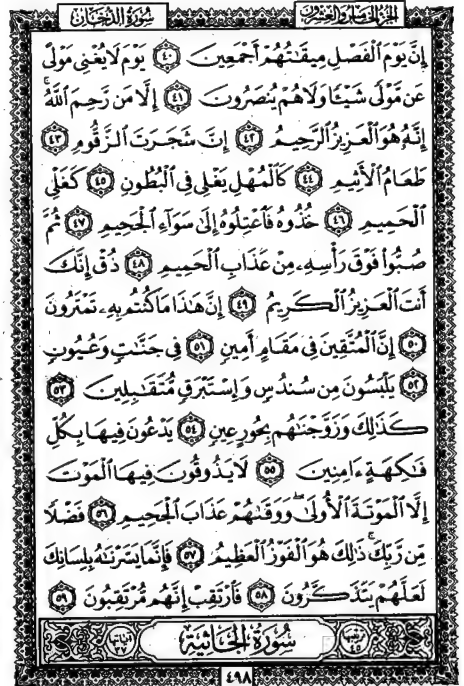 الجزء الخامس والعشرون سورة الدخان
إِنَّ يَوْمَ ٱلْفَصْلِ مِيقَـٰتُهُمْ أَجْمَعِينَ ٤٠ يَوْمَ لَا يُغْنِى مَوْلًى
عَن مَّوْلًى شَيْـًٔا وَلَا هُمْ يُنصَرُونَ ٤١ إِلَّا مَن رَّحِمَ ٱللَّهُ ۚ
إِنَّهُۥ هُوَ ٱلْعَزِيزُ ٱلرَّحِيمُ ٤٢ إِنَّ شَجَرَتَ ٱلزَّقُّومِ ٤٣
طَعَامُ ٱلْأَثِيمِ ٤٤ كَٱلْمُهْلِ يَغْلِى فِى ٱلْبُطُونِ ٤٥ كَغَلْىِ
ٱلْحَمِيمِ ٤٦ خُذُوهُ فَٱعْتِلُوهُ إِلَىٰ سَوَآءِ ٱلْجَحِيمِ ٤٧ ثُمَّ
صُبُّوا۟ فَوْقَ رَأْسِهِۦ مِنْ عَذَابِ ٱلْحَمِيمِ ٤٨ ذُقْ إِنَّكَ
أَنتَ ٱلْعَزِيزُ ٱلْكَرِيمُ ٤٩ إِنَّ هَـٰذَا مَا كُنتُم بِهِۦ تَمْتَرُونَ
٥٠ إِنَّ ٱلْمُتَّقِينَ فِى مَقَامٍ أَمِينٍ ٥١ فِى جَنَّـٰتٍ وَعُيُونٍ
٥٢ يَلْبَسُونَ مِن سُندُسٍ وَإِسْتَبْرَقٍ مُّتَقَـٰبِلِينَ ٥٣
كَذَٰلِكَ وَزَوَّجْنَـٰهُم بِحُورٍ عِينٍ ٥٤ يَدْعُونَ فِيهَا بِكُلِّ
فَـٰكِهَةٍ ءَامِنِينَ ٥٥ لَا يَذُوقُونَ فِيهَا ٱلْمَوْتَ
إِلَّا ٱلْمَوْتَةَ ٱلْأُولَىٰ ۖ وَوَقَىٰهُمْ عَذَابَ ٱلْجَحِيمِ ٥٦ فَضْلًا
مِّن رَّبِّكَ ۚ ذَٰلِكَ هُوَ ٱلْفَوْزُ ٱلْعَظِيمُ ٥٧ فَإِنَّمَا يَسَّرْنَـٰهُ بِلِسَانِكَ
لَعَلَّهُمْ يَتَذَكَّرُونَ ٥٨ فَٱرْتَقِبْ إِنَّهُم مُّرْتَقِبُونَ ٥٩
ترتيبها ٤٥ سُورَةُ الجَاثِيَةِ آياتها ٣٧
٤٩٨